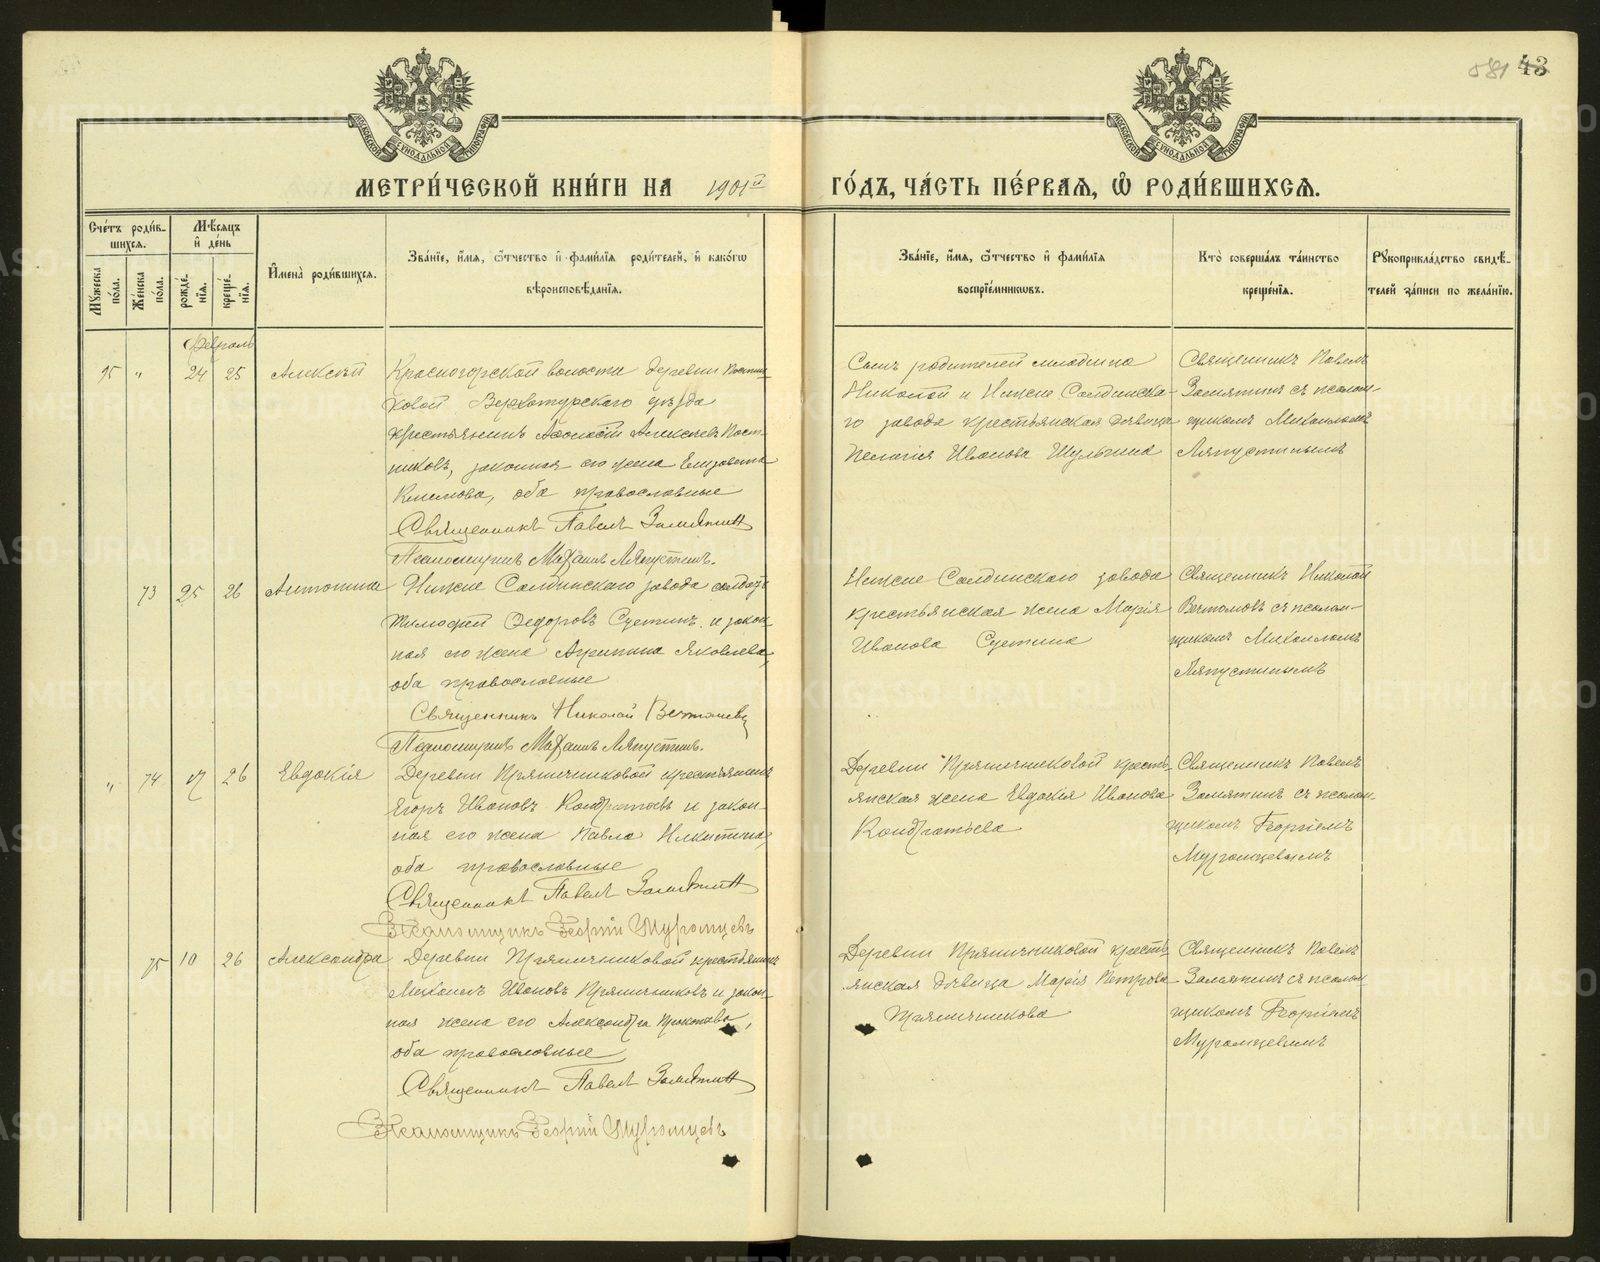 581 43
МОСКОВСКОЙ СѴНОДАЛЬНОЙ ТИПОГРАФІИ
МОСКОВСКОЙ СѴНОДАЛЬНОЙ ТИПОГРАФІИ
МЕТРИ́ЧЕСКОЙ КНИ́ГИ НА 1901й ГО́ДЪ, ЧА́СТЬ ПЕ́РВАѦ, Ѡ҆ РОДИ́ВШИХСѦ.
Сче́тъ роди́в-
шихся.
Мꙋ́жеска по́ла.
Же́нска по́ла.
Мѣ́сяцъ
и҆ де́нь
рожде́нїѧ.
креще́нїѧ.
И҆мена̀ роди́вшихся.
Зва́нїе, и҆́мѧ, ѻ҆́тчество и҆ фами́лїѧ роди́телей, и҆ како́гѡ
вѣроисповѣ́данїѧ.
Зва́нїе, и҆́мѧ, ѻ҆́тчество и҆ фами́лїѧ
воспрїе́мникѡвъ.
Кто̀ соверша́лъ та́инство
креще́нїѧ.
Рꙋкоприкла́дство свидѣ́-
телей за́писи по жела́нїю.
Февраль
95 " 24 25 Алексѣй
Красногорской волости деревни Постни-
ковой Верхотурскаго уѣзда
крестьянинъ Алексѣевъ Пост-
никовъ, законная его жена Елизавета
Климова, оба православные
Священникъ Павелъ Замятинъ
Псаломщикъ Михаилъ Ляпустинъ.
Сынъ родителей младшiй
Николай и Нижне Салдинска-
го завода крестьянская дѣвица
Пелагія Иванова Шульгина
Священникъ Павелъ
Замятинъ съ псалом-
щикомъ Михаиломъ
Ляпустинымъ
73 25 26 Антонина
Нижне Салдинскаго завода солдатъ
Тимофей Ѳедоровъ Суетинъ и закон-
ная его жена Агрипина Яковлева,
оба православные
Священникъ Николай
Псаломщикъ Михаилъ Ляпустинъ.
Нижне Салдинскаго завода
крестьянская жена Марія
Иванова Суетина
Священникъ Николай
съ псалом-
щикомъ Михаиломъ
Ляпустинымъ
" 74 17 26 Евдокія
Деревни Пряничниковой крестьянинъ
Егоръ Ивановъ Кондратьевъ и закон-
ная его жена Павла Никитина,
оба православные
Священникъ Павелъ Замятинъ
Псаломщикъ Георгій Муромцевъ
Деревни Пряничниковой кресть-
янская жена Евдокія Иванова
Кондратьева
Священникъ Павелъ
Замятинъ съ псалом-
щикомъ Георгіемъ
Муромцевымъ
75 10 26 Александра
Деревни Пряничниковой крестьянинъ
Михаилъ Ивановъ Пряничниковъ и закон-
ная жена его Александра
оба православные
Священникъ Павелъ Замятинъ
Псаломщикъ Георгій Муромцевъ
Деревни Пряничниковой кресть-
янская дѣвица Марія Петрова
Пряничникова
Священникъ Павелъ
Замятинъ съ псалом-
щикомъ Георгіемъ
Муромцевымъ
METRIKI.GASO-URAL.RU